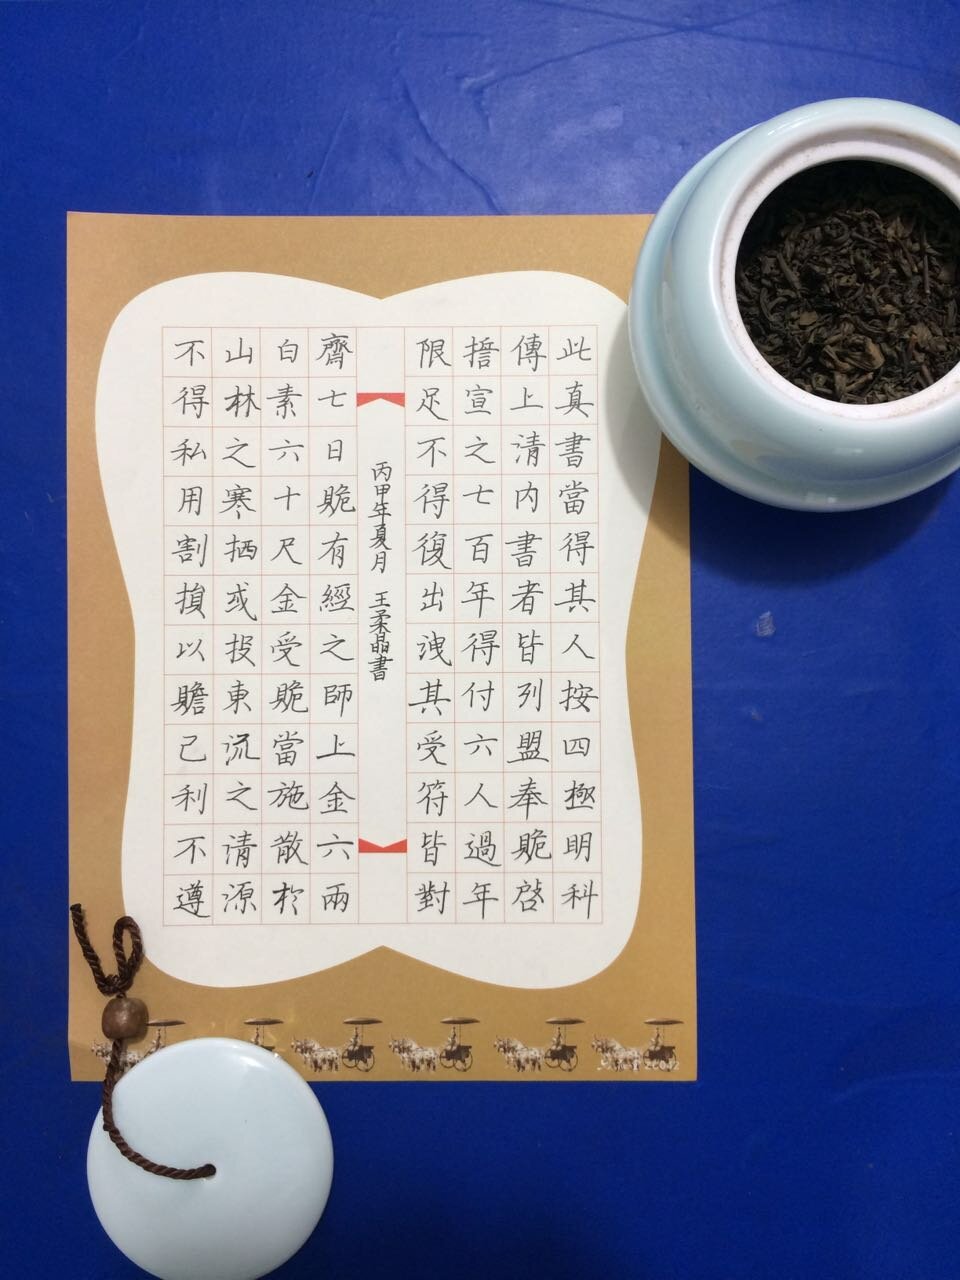 此真書當得其人按四極明科
傳上清内書者皆列盟奉賆啓
擔宣之七百年得付六人過年
限足不得復出洩其受符皆對
丙甲年夏月 王柔晶書
齊七日賆有經之師上金六兩
白素六十尺金受賆當施散於
山林之寒栖或投東流之清源
不得私用割損以贍己利不遵
ZC042